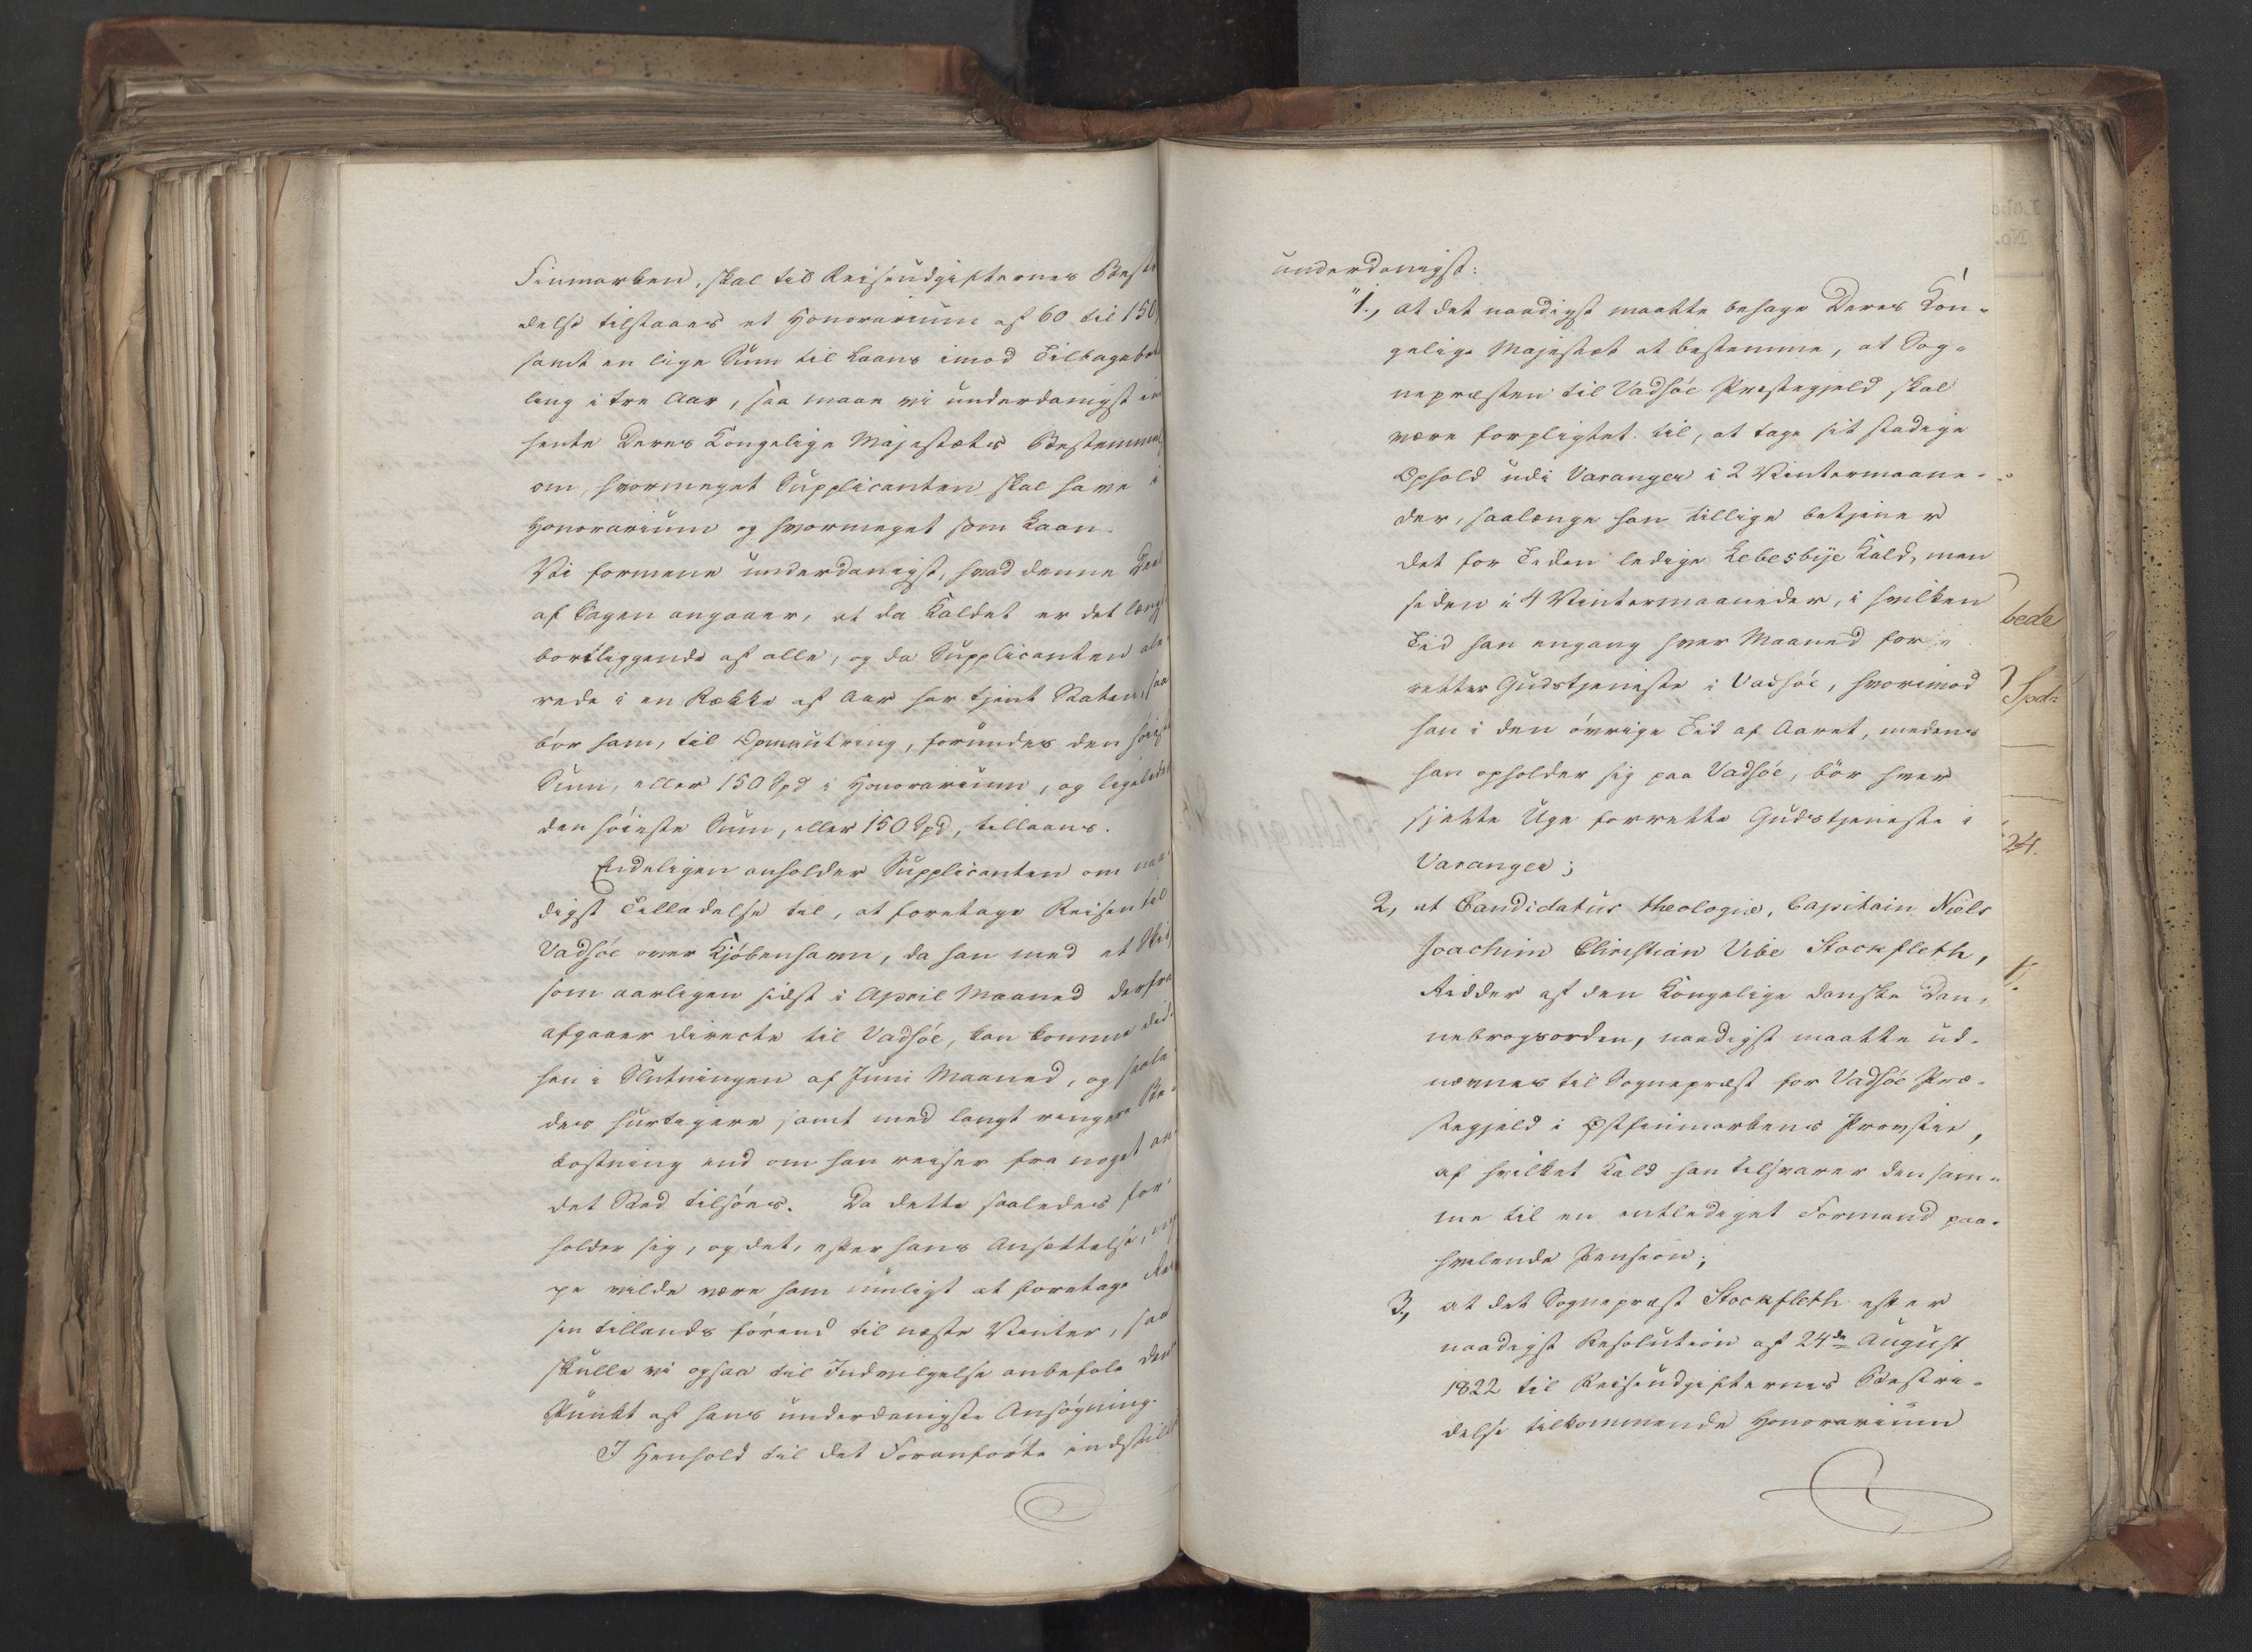 Finmarken, skal til Reiseudgifternes Bestri
delse tilstaaes et Honorarium af 60 til 150
samt en lige Sum til Laans imod Tilbagebeta
ling i tre Aar, saa maae vi underdanigst in
hente Deres Kongelige Majestæts Bestemmel
om, hvormeget Supplicanten skal have i
Honorarium og hvormeget som Laan.
Vi formene underdanigst, hvad denne Deel
af Sagen angaaer, at da Kaldet er det længst
bortliggende af alle, og da Supplicanten alle
rede i en Række af Aar har tjent Staten, saa
bör ham, til Opmuntring, forundes den höieste
Sum, eller 150 Spd i Honorarium, og ligeledes
den höieste Sum, eller 150 Spd, tillaans.
Endeligen anholder Supplicanten om naa-
digst Tilladelse til, at foretage Reisen til
Vadsöe over Kjöbenhavn, da han med et Skib
som aarligen sidst i April Maaned derfra
afgaaer directe til Vadsöe, kan komme did-
hen i Slutningen af Juni Maaned, og saale-
des hurtigere samt med langt ringere Be-
kostning end om han reiser fra noget an-
det Sted tilsöes. Da dette saaledes for-
holder sig, og det, efter hans Ansættelse,
pe vilde være ham muligt at foretage Rei
sen tillands förend til næste Vinter, saa
skulle vi ogsaa til Indvilgelse anbefale den
Punkt af hans underdanigste Ansögning.
I Henhold til det Foranförte indstilles
underdanigst:
"1., at det naadigst maatte behage Deres Kon-
gelige Majestæt at bestemme, at Sog-
nepræsten til Vadsöe Præstegjeld skal
være forpligtet til, at tage sit stadige
Ophold udi Varanger i 2 Vintermaane-
der, saalænge han tillige betjener
det for Tiden ledige Lebesbye Kald, men
siden i 4 Vintermaaneder, i hvilken
Tid han engang hver Maaned for-
retter Gudstjeneste i Vadsöe, hvorimod
han i den övrige Tid af Aaret, medens
han opholder sig paa Vadsöe, bör hver
sjette Uge forrette Gudstjeneste i
Varanger;
2, at Candidatus theologiæ, Capitain Niels
Joachim Christian Vibe Stockfleth,
Ridder af den Kongelige danske Dan-
nebrogsorden, naadigst maatte ud-
nævnes til Sognepræst for Vadsöe Præ-
stegjeld i Østfinmarkens Provstie,
af hvilket Kald han tilsvarer den sam-
me til en entlediget Formand paa-
hvilende Pension;
3, at det Sognepræst Stockfleth efter
naadigst Resolution af 24de August
1822 til Reiseudgifternes Bestri-
delse tilkommende Honorarium
bede
Spd:
24.